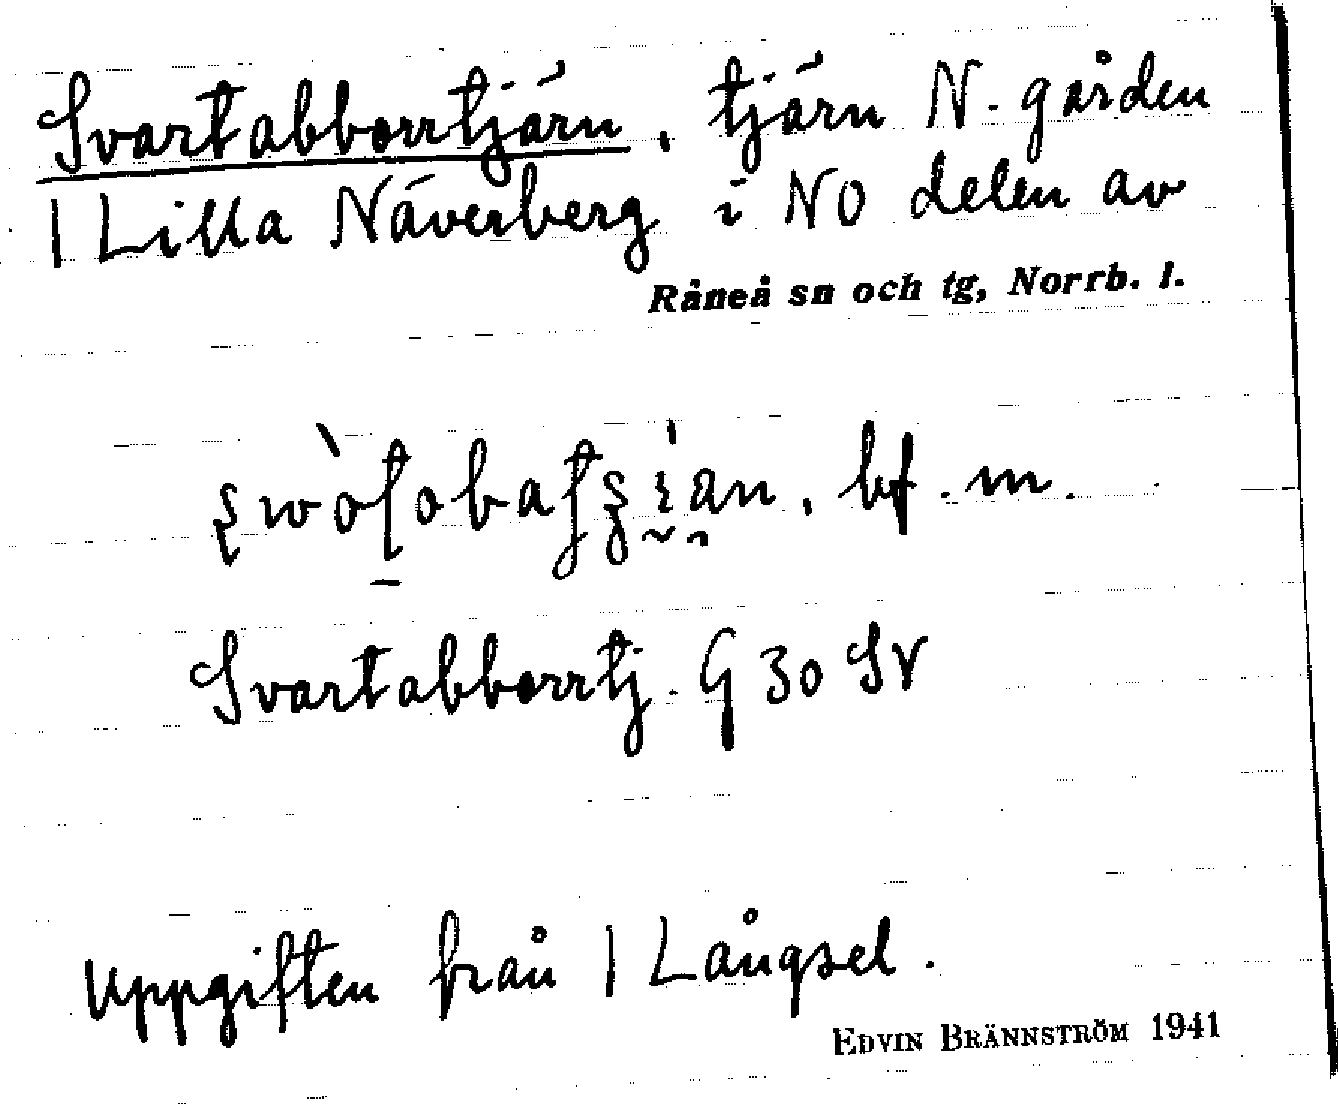 Svartabborrtjärn, tjärn N. gården
1 Lilla Näverberg i NO delen av
Råneå sn och tg, Norrb. l.
bf. m.
Svartabborrtj. G 30 SV
Uppgiften från 1 Långsel.
EDVIN BRÄNNSTRÖM 1941